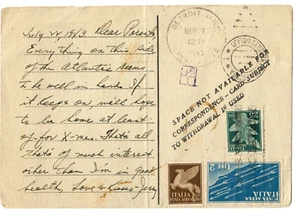 July 22, 1943 Dear Parents,
Everything on this side
of the Atlantic seems
to be well in hand. If
it keeps on, we'll hope
to be home at least
for X-mas. That's all
that's of much interest
other than I'm in great
health, Love
DETROIT
SPACE NOT AVAILABLE FOR
CORRESPONDENCE - CARD SUBJECT
TO WITHDRAWAL IF USED
POSTA AEREA
ITALIA
LIRE 2
POSTA AEREA
ITALIA